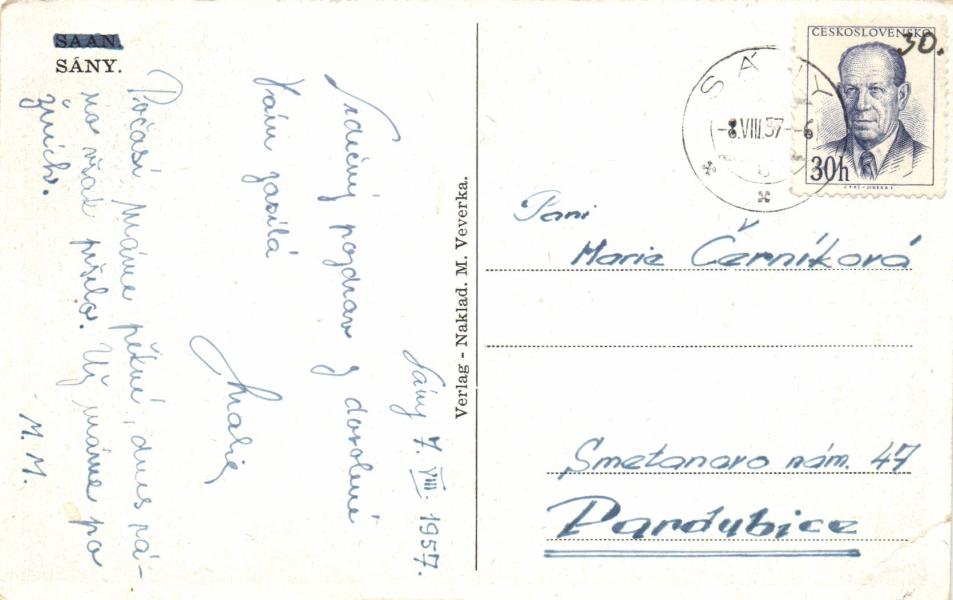 SAAN.
SÁNY.
Sány 7. VIII. 1957.
Srdečný pozdrav z dovolené
Vám zasílá
Počasí máme pěkné, dnes rá-
no však pršelo. Už máme po
žních.
M. M.
Verlag - Naklad. M. Veverka.
ČESKOSLOVENSKO
30.
30h
SÁNY
VIII.57
Paní
Marie Černíková
Smetanovo nám. 47
Pardubice